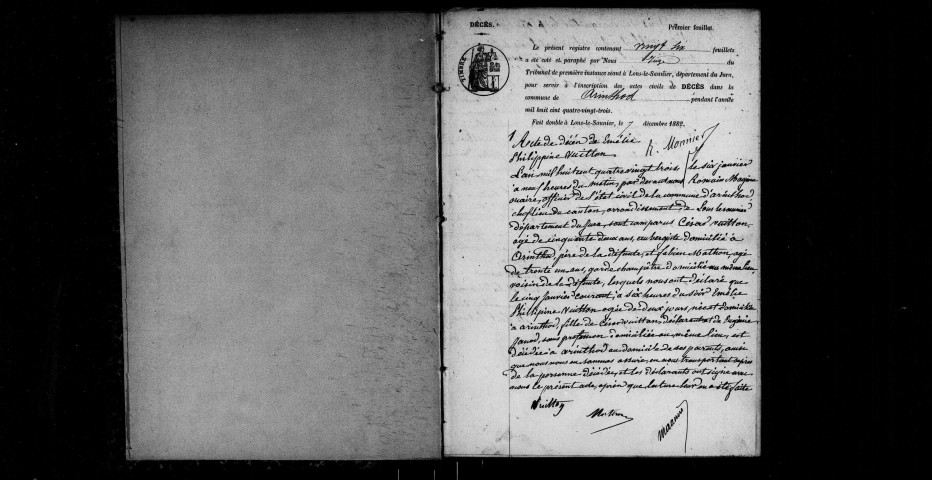 DÉCÈS.
Premier feuillet.
TIMBRE
Le présent registre contenant vingt six feuillets
a été coté et paraphé par Nous Juge du
Tribunal de première instance séant à Lons-le-Saunier, département du Jura,
pour servir à l'inscription des actes civils de DÉCÈS dans la
commune de Arinthod pendant l'année
mil huit cent quatre-vingt-trois.
Fait double à Lons-le-Saunier, le 7 décembre 1882.
1 Acte de décès de Emélie
Philippine Vuitton
R. Monnier
L'an mil huit cent quatre vingt trois le six janvier
à neuf heures du matin, par devant nous Romain
maire, officier de l'état civil de la commune d'arinthod
chef lieu de canton, arrondissement de Lons le saunier
département du Jura, sont comparus César Vuitton,
agé de cinquante deux ans, aubergiste domicilié à
Arinthod, père de la défunte, et fabien Mathon, agé
de trente un ans, garde champêtre domicilié au même lieu
voisin de la défunte, lesquels nous ont déclaré que
le cinq Janvier courant, à six heures du soir Emélie
Philippine Vuitton agée de deux jours, née et domiciliée
à arinthod, fille de César vuitton, déclarant et de
sans profession domiciliée au même lieu, est
décédée à arinthod au domicile de ses parents, ainsi
que nous nous en sommes assuré, en nous transportant auprès
de la personne décédée, et les déclarants ont signé avec
nous le présent acte, après que lecture leur en a été faite
Vuitton